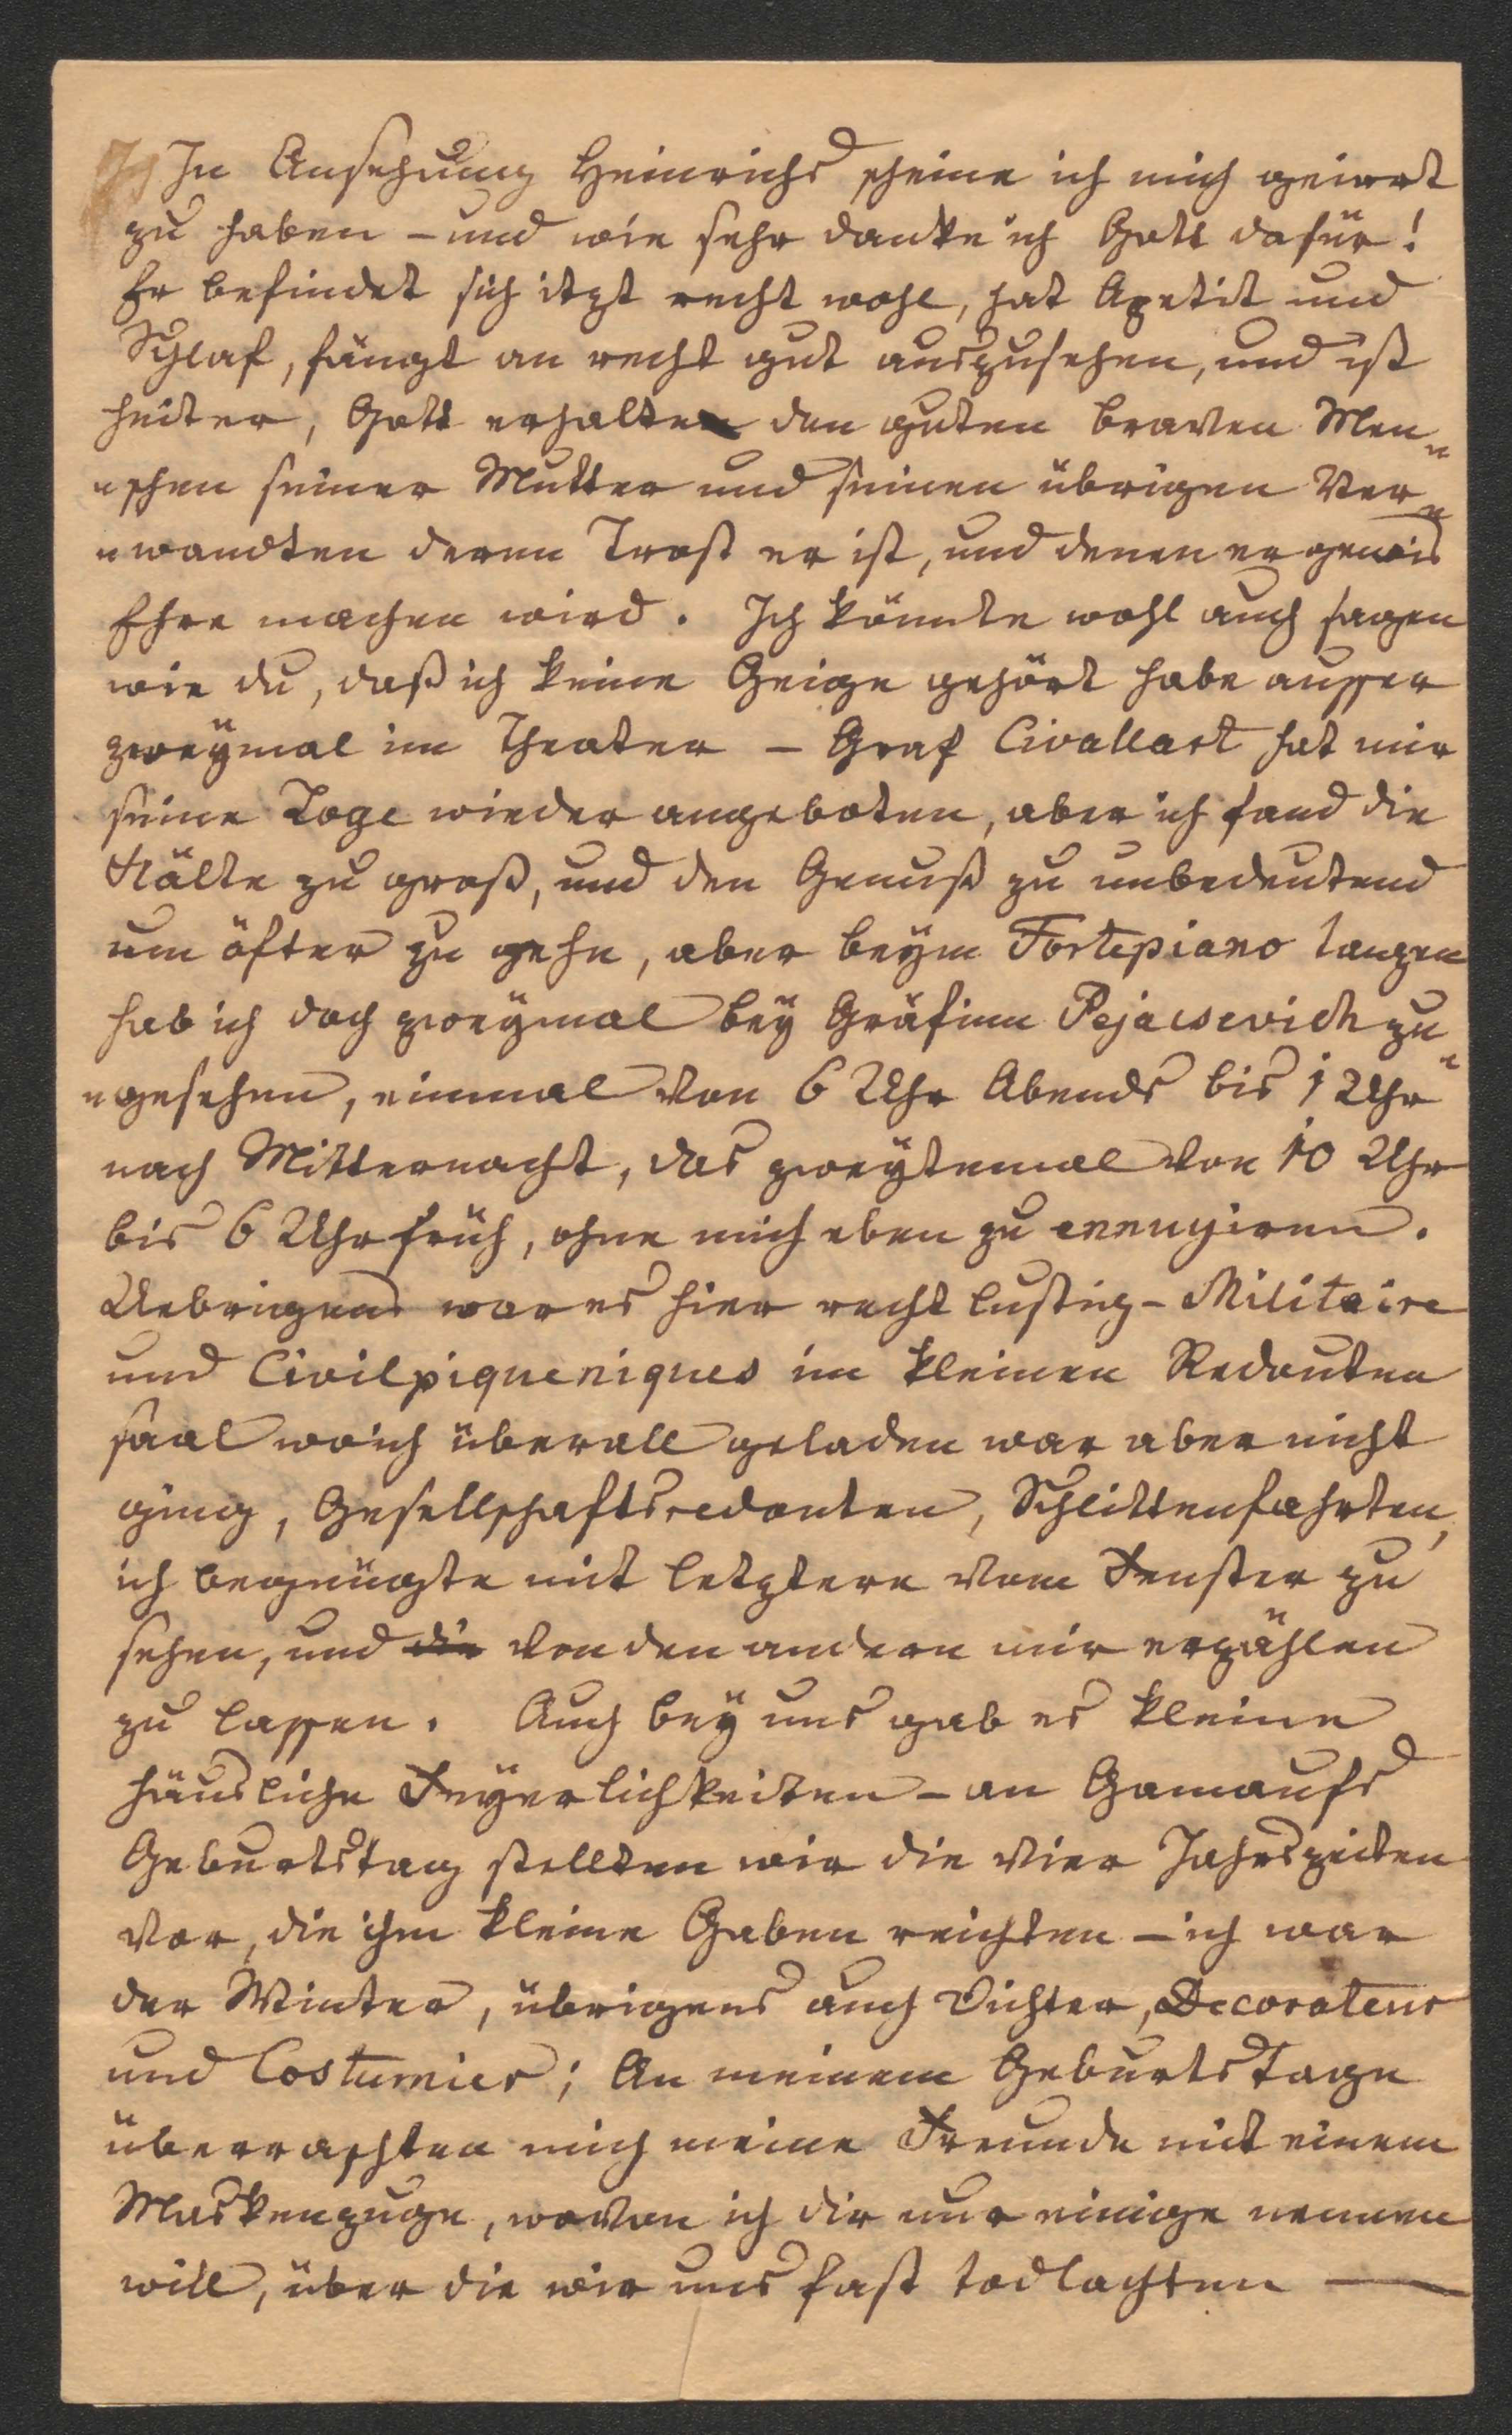 In Ansehung Heinrichs scheine ich mich geirrt
zu haben – und wie sehr danke ich Gott dafür!
Er befindet sich itzt recht wohl, hat Apetit und
Schlaf, fängt an recht gut auszusehen, und ist
heiter, Gott erhalte den guten braven Men„
„schen seiner Mutter und seinen übrigen Ver„
„wandten deren Trost er ist, und denen er gewis
Ehre machen wird. Ich könnte wohl auch sagen
wie du, daß ich keine Geige gehört habe ausser
zweÿmal im Theater – Graf Civallart hat mir
seine Loge wieder angeboten, aber ich fand die
Kälte zu groß, und den Genuß zu unbedeutend
um öfter zu gehn, aber beÿm Fortepiano tanzen
hab ich doch zweÿmal beÿ Gräfinn Pejacsevich zu„
„gesehen, einmal von 6 Uhr Abends bis 1 Uhr
nach Mitternacht, das zweÿtemal von 10 Uhr
bis 6 Uhr früh, ohne mich eben zu ennuyiren.
Uebrigens war es hier recht lustig – Militaire
und Civilpiqueniques im kleinen Redouten
saal wo ich überall geladen war aber nicht
ging, Gesellschaftsredouten, Schlittenfahrten,
ich begnügte mit letztere vom Fenster zu
sehen, und die von den andern mir erzählen
zu lassen. Auch beÿ uns gab es kleine
häusliche Feÿerlichkeiten – an Gamaufs
Geburtstag stellten wir die vier Jahrszeiten
vor, die ihm kleine Gaben reichten – ich war
der Winter, übrigens auch Dichter, Decorateur
und Costumier; An meinem Geburtstage
überraschten mich meine Freunde mit einem
Maskenzuge, wovon ich dir nur einige nennen
will, über die wir uns fast todlachten —